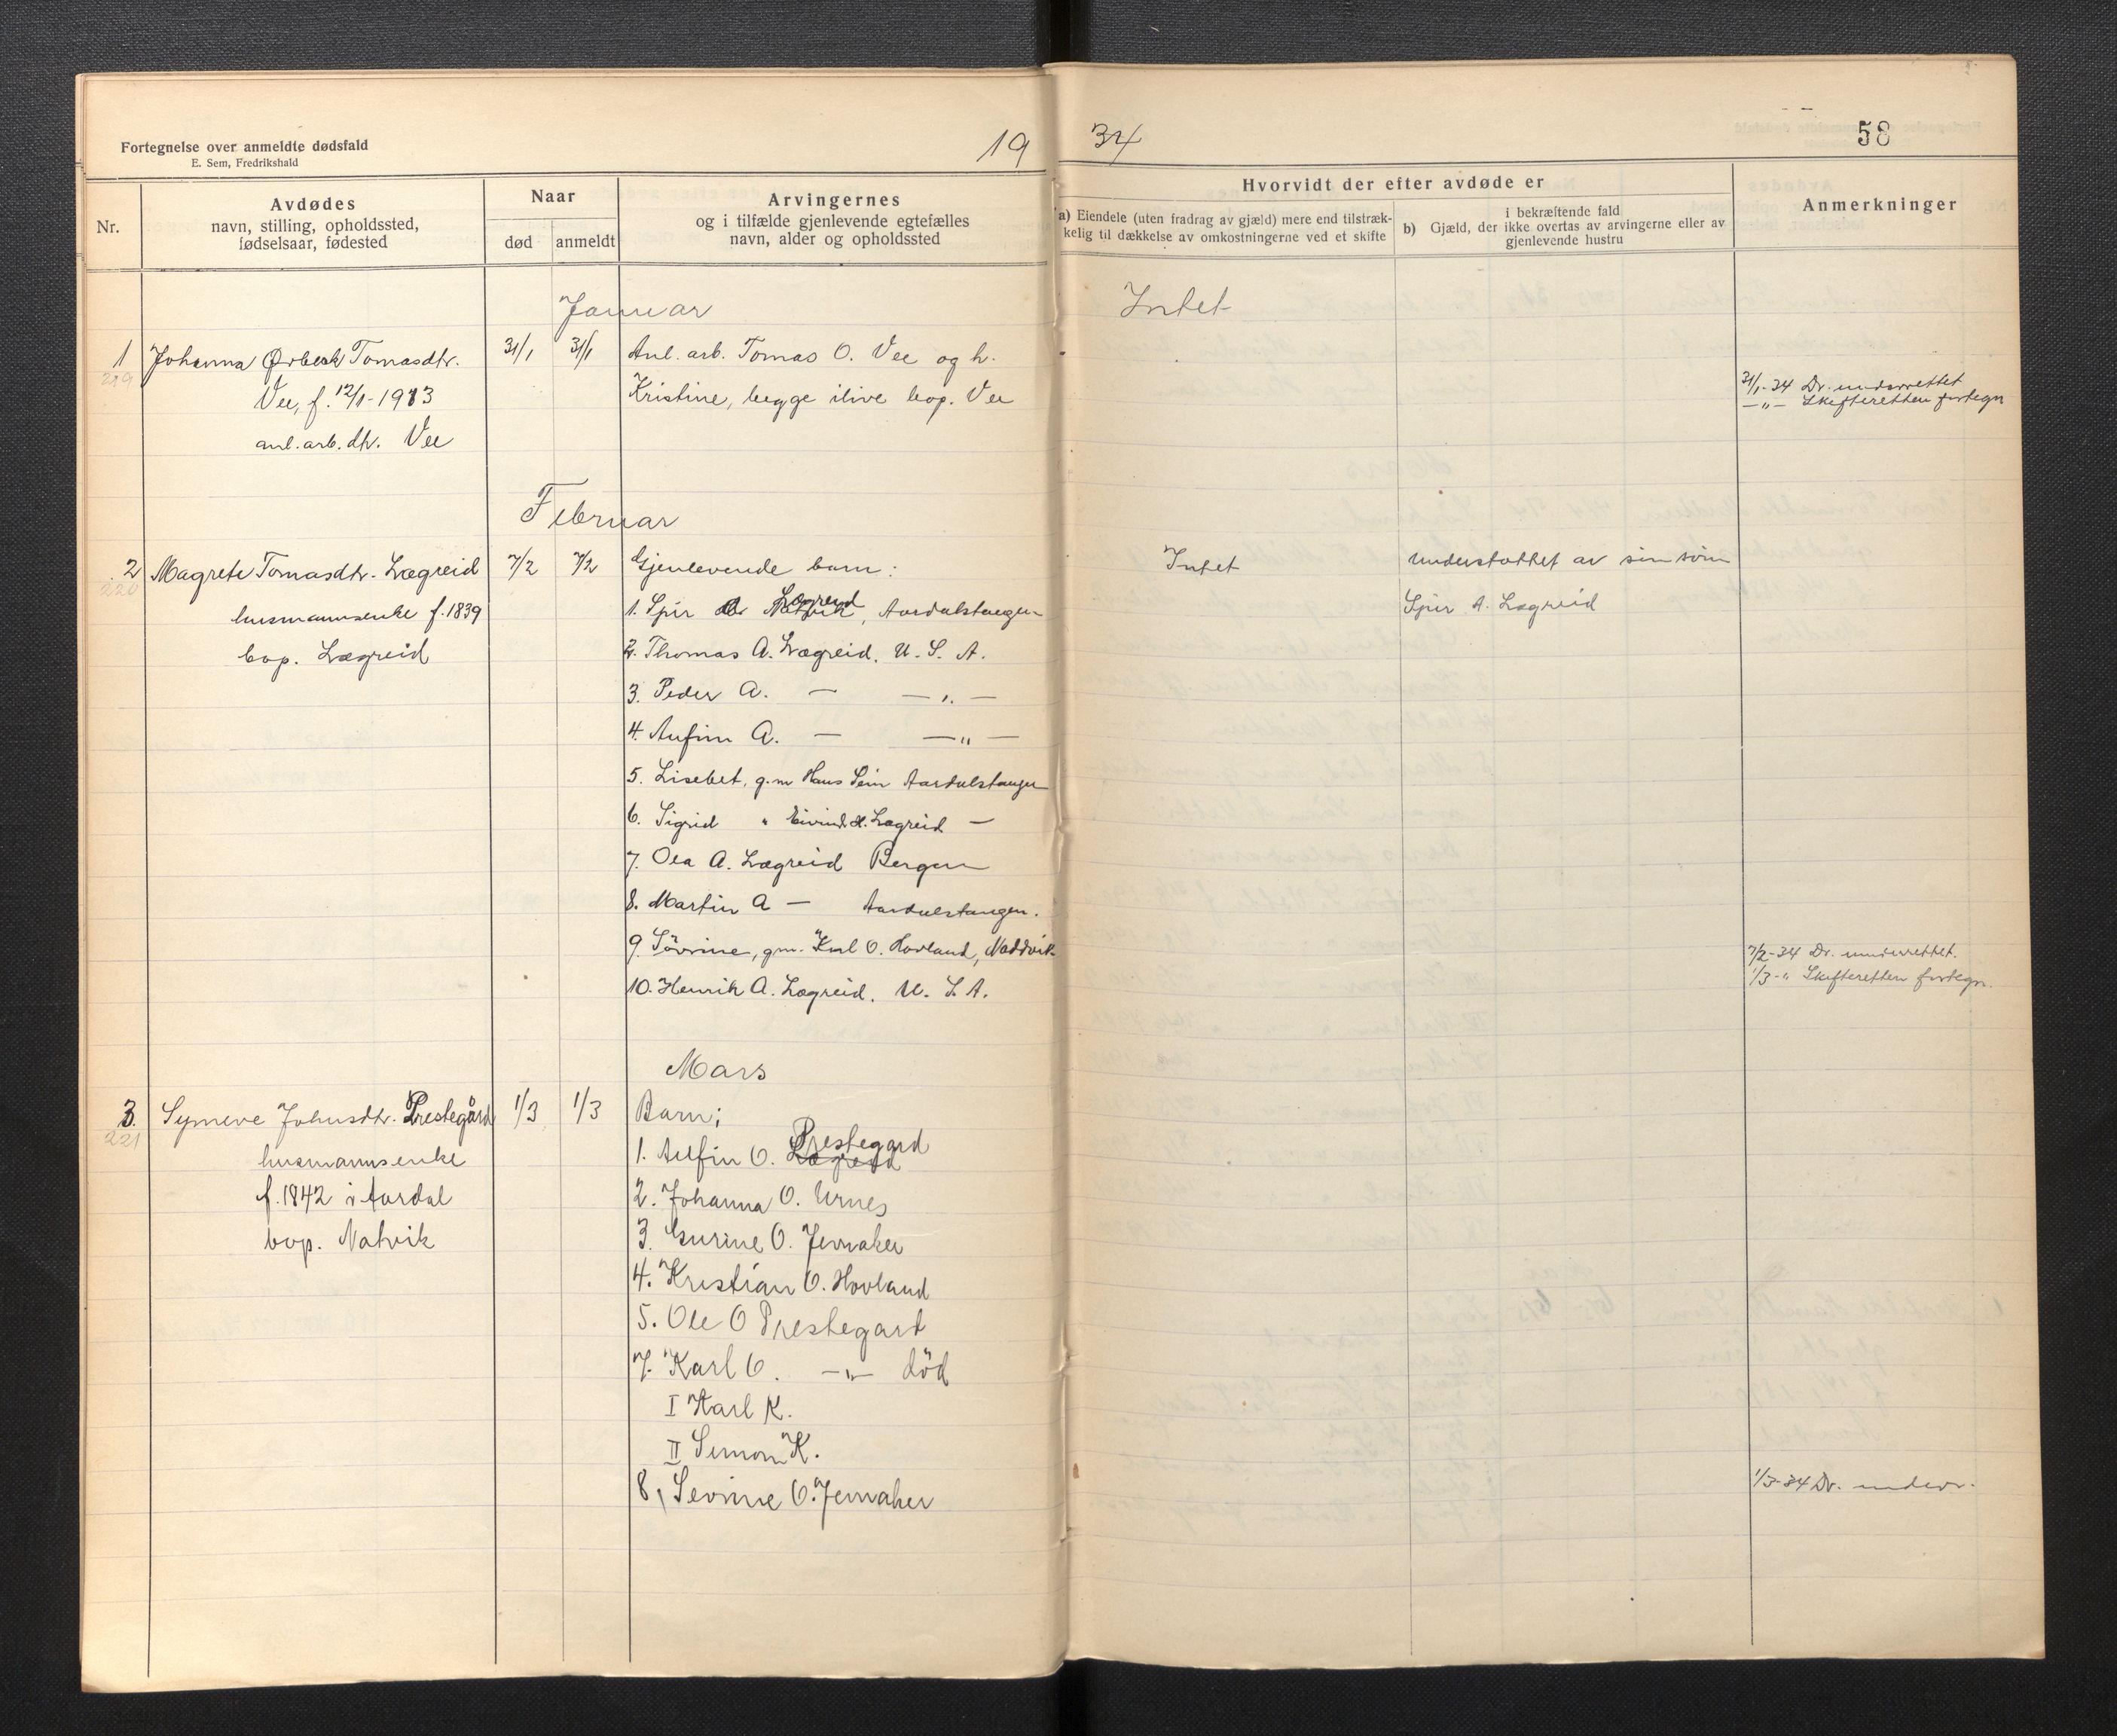 Fortegnelse over anmeldte dødsfald
E. Sem, Fredrikshald
19
34
58
Nr.
Avdødes
navn, stilling, opholdssted,
fødselsaar, fødested
Naar
død
anmeldt
Arvingernes
og i tilfælde gjenlevende egtefælles
navn, alder og opholdssted
Hvorvidt der efter avdøde er
a) Eiendele (uten fradrag av gjæld) mere end tilstræk-
kelig til dækkelse av omkostningerne ved et skifte
b) Gjæld, der ikke overtas av arvingerne eller av
i bekræftende fald
gjenlevende hustru
Anmerkninger
Januar
Intet
1 Johanna Tomasdtr. 31/1 31/1 Anl. arb. Tomas O. Vee og h.
219
Vee, f. 12/1-1913 Kristine, begge ilive bop. Vee
anl. arb. dtr. Vee
31/1-34 Dr. underrettet
—„— Skifteretten fortegn
Februar
2 Magrete Tomasdtr. Lægreid 7/2 7/2 Gjenlevende barn:
220
husmannsenke f. 1839
bop. Lægreid
1. Spir Lægreid, Aardalstangen
2. Thomas A. Lægreid. U. S. A.
3. Peder A. — —„—
4. Anfinn A. — —„—
5. Lisebet, g.m Hans Aardalstangen
6. Sigrid „ Eivind Lægreid —
7. Ola A. Lægreid Bergen
8. Martin A — Aardalstangen.
9. Sövrine, gm. Karl O. Hovland, Naddvik
10. Henrik A. Lægreid. U. S. A.
Intet
understøttet av sin sønn
Spir A. Lægreid
7/2-34 Dr. underrettet.
1/3-„ Skifteretten fortegn.
Mars
3. Synneve Johnsdtr. Prestegård 1/3 1/3 Barn;
221
husmannsenke
f. 1842 i Aardal
bop. Natvik
1. Anfin O. Prestegard
2. Johanna O. Urnes
3. Gurine O. Jevnaker
4. Kristian O. Hovland
5. Ole O Prestegard
7. Karl O. —„— död
I Karl K.
II Simon K.
8, Sevrine O. Jevnaker
1/3-34 Dr. underr.